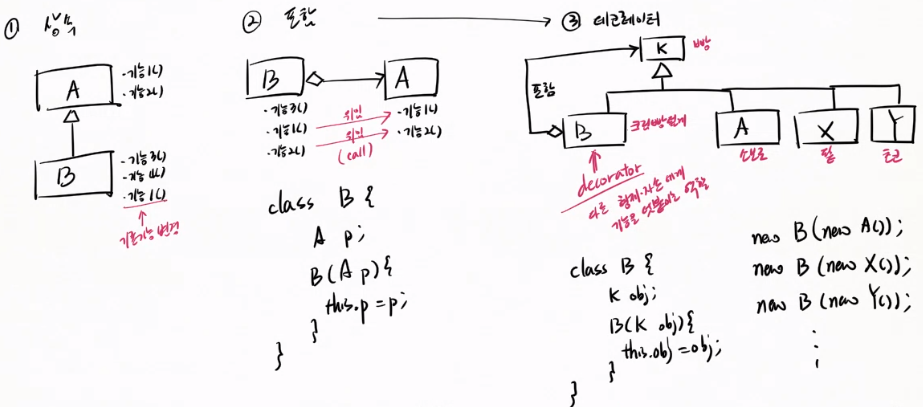 ① 상속
A
-기능1()
-기능2()
B
-기능3()
-기능2()
-기능1()
기존기능 변경
② 포함
B
A
-기능3()
-기능1()
-기능2()
위임
위임
(call)
-기능1()
-기능2()
class B {
A p;
B(A p){
this.p = p;
}
}
③ 데코레이터
K
빵
포함
B
크림빵
A
소보로
X
팥
Y
초코
decorator
다른 형제·자손에게
기능을 덧붙이는 역할
class B {
K obj;
B(K obj){
this.obj = obj;
}
}
new B(new A());
new B(new X());
new B(new Y());
⋮